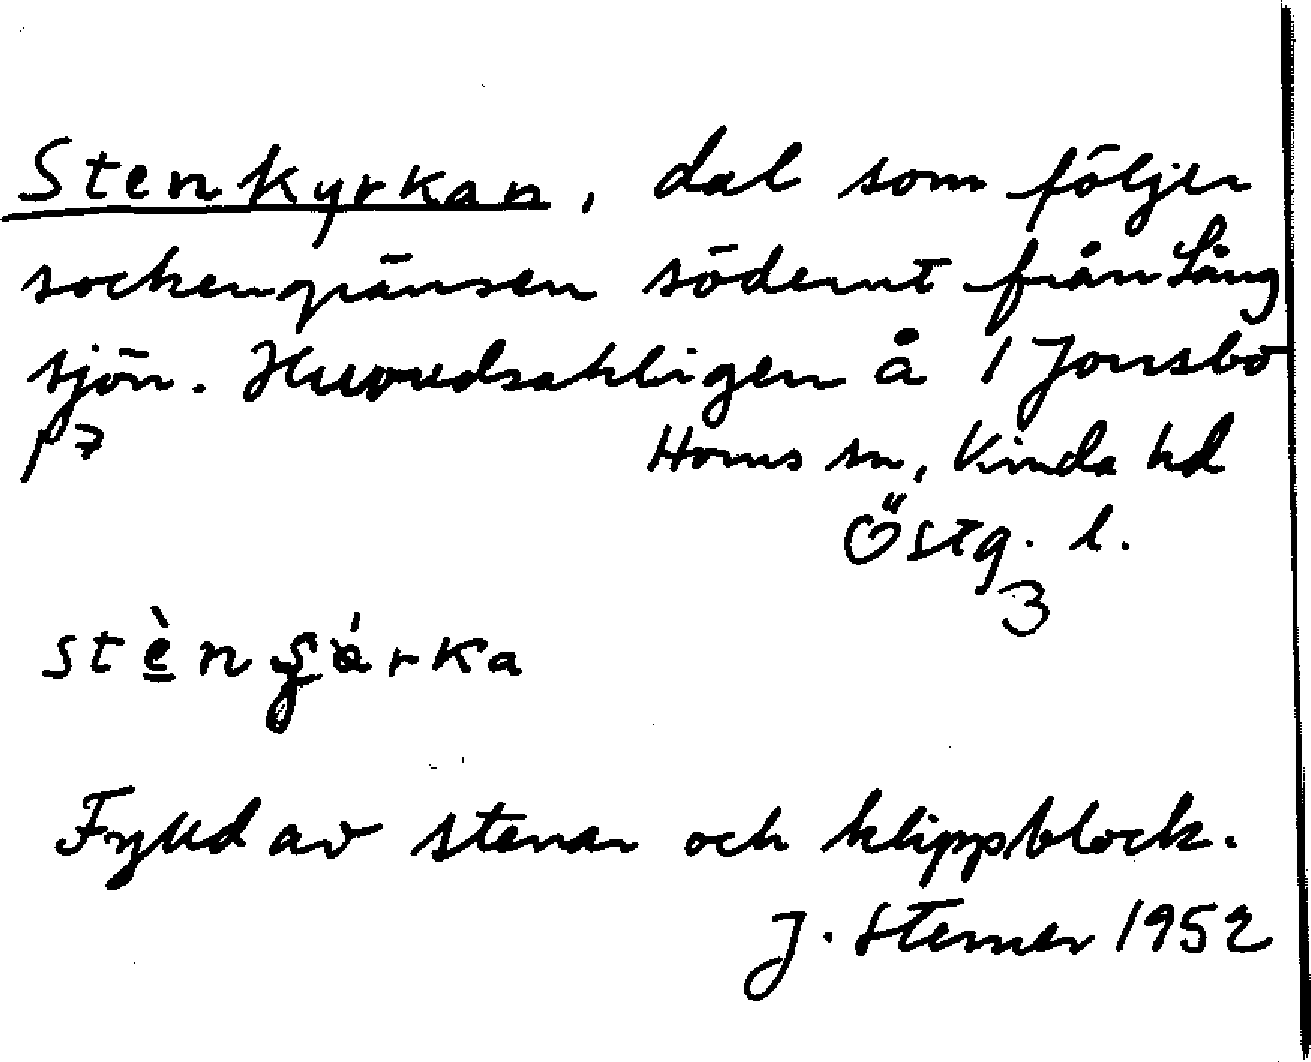 Stenkyrkan, dal som följer
sockengränsen söderut från Lång
sjön. Huvudsakligen å 1 Jonsbo
p7 Horns sn, Kinda hd
Östg. l.
3
Fylld av stenar och klippblock.
J. Sterner 1952